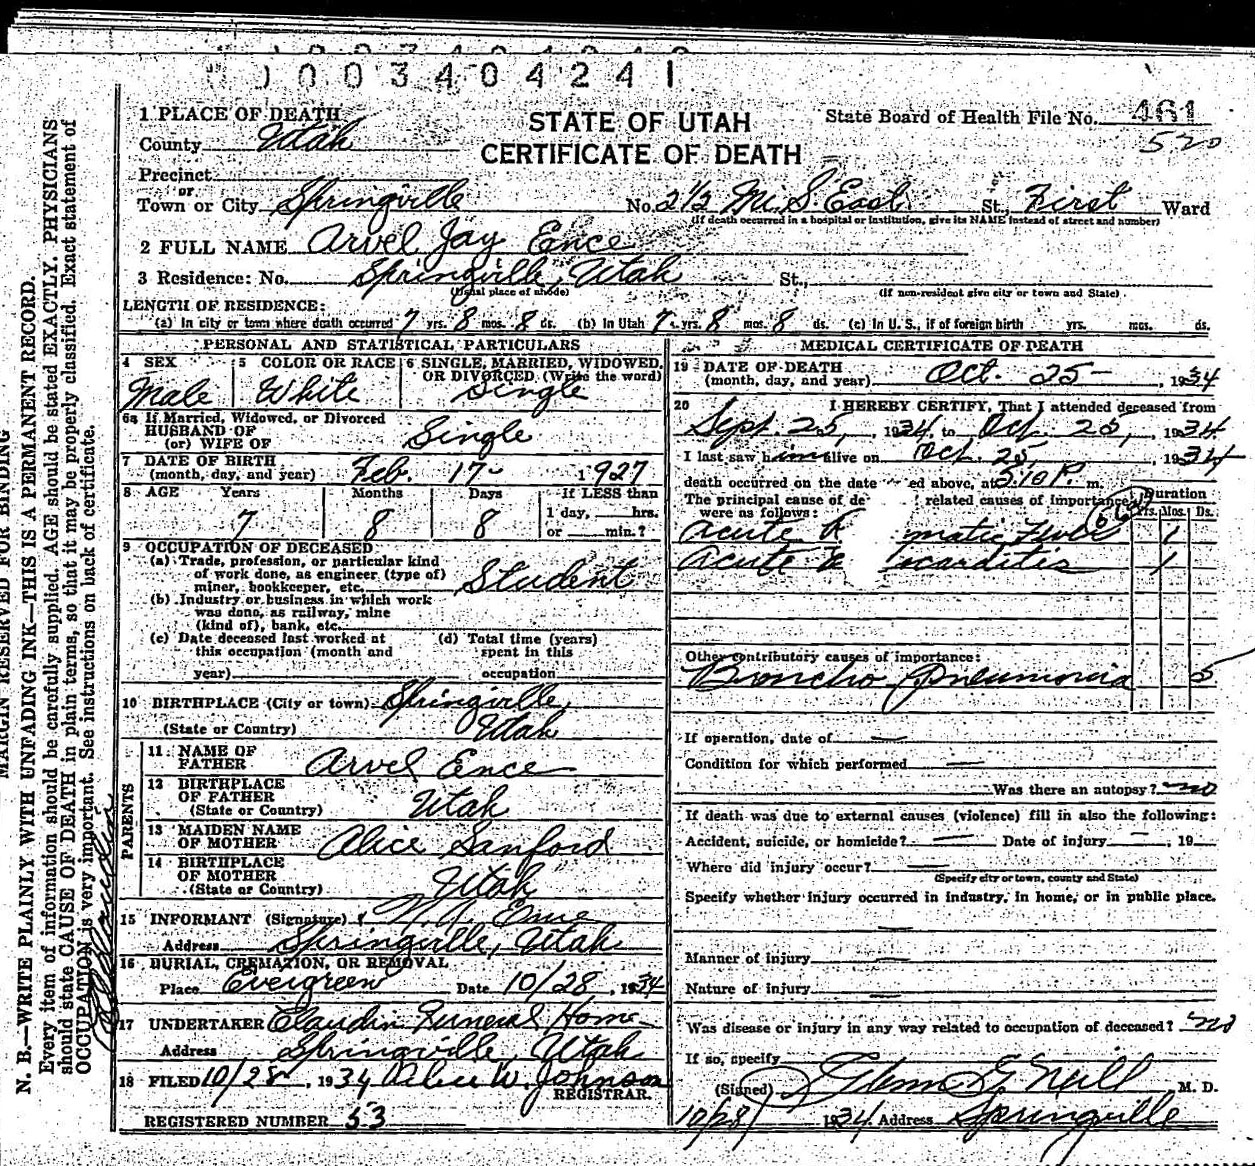 0 0 3 4 0 4 2 4 1
1 PLACE OF DEATH
County Utah
STATE OF UTAH
CERTIFICATE OF DEATH
State Board of Health File No. 461
520
Precinct
or
Town or City Springville No. 2 1/2 Mi. S. East St., First Ward
(If death occurred in a hospital or institution, give its NAME instead of street and number)
2 FULL NAME Arvel Jay Ence
3 Residence: No. Springville, Utah St.,
(Usual place of abode) (If non-resident give city or town and State)
LENGTH OF RESIDENCE:
(a) In city or town where death occurred 7 yrs. 8 mos. 8 ds. (b) In Utah 7 yrs. 8 mos. 8 ds. (c) In U. S., if of foreign birth yrs. mos. ds.
PERSONAL AND STATISTICAL PARTICULARS
4 SEX Male
5 COLOR OR RACE White
6 SINGLE, MARRIED, WIDOWED, OR DIVORCED (Write the word) Single
6a If Married, Widowed, or Divorced
HUSBAND OF
(or) WIFE OF Single
7 DATE OF BIRTH
(month, day, and year) Feb. 17- 1927
8 AGE Years Months Days If LESS than
7 8 8 1 day, hrs.
or min.?
9 OCCUPATION OF DECEASED:
(a) Trade, profession, or particular kind
of work done, as engineer (type of)
miner, bookkeeper, etc. Student
(b) Industry or business in which work
was done, as railway, mine
(kind of), bank, etc.
(c) Date deceased last worked at
this occupation (month and
year)
(d) Total time (years)
spent in this
occupation
10 BIRTHPLACE (City or town) Springville,
(State or Country) Utah
PARENTS
11 NAME OF
FATHER Arvel Ence
12 BIRTHPLACE
OF FATHER
(State or Country) Utah
13 MAIDEN NAME
OF MOTHER Alice Sanford
14 BIRTHPLACE
OF MOTHER
(State or Country) Utah
15 INFORMANT (Signature) Ence
Address Springville, Utah
16 BURIAL, CREMATION, OR REMOVAL
Place Evergreen Date 10/28, 1934
17 UNDERTAKER Claudin Funeral Home
Address Springville, Utah
18 FILED 10/28, 1934 Alice W. Johnson
REGISTRAR.
REGISTERED NUMBER 53
MEDICAL CERTIFICATE OF DEATH
19 DATE OF DEATH
(month, day, and year) Oct. 25- , 1934
20 I HEREBY CERTIFY, That I attended deceased from
Sept. 25, 1934, to Oct. 25, 1934
I last saw him alive on Oct. 25, 1934
death occurred on the date ed above, at 3:10 P. m.
The principal cause of de related causes of importance
were as follows:
Duration
Yrs. Mos. Ds.
Acute R matic Fever 1
Acute E ocarditis 1
Other contributory causes of importance:
Broncho pneumonia 5
If operation, date of —
Condition for which performed —
Was there an autopsy? no
If death was due to external causes (violence) fill in also the following:
Accident, suicide, or homicide? — Date of injury — , 19
Where did injury occur? —
(Specify city or town, county and State)
Specify whether injury occurred in industry, in home, or in public place.
—
Manner of injury —
Nature of injury —
Was disease or injury in any way related to occupation of deceased? no
If so, specify
(Signed) Glenn E. Neill M. D.
10/28/ 1934 Address Springville
MARGIN RESERVED FOR BINDING
N. B.—WRITE PLAINLY WITH UNFADING INK—THIS IS A PERMANENT RECORD.
Every item of information should be carefully supplied. AGE should be stated EXACTLY. PHYSICIANS
should state CAUSE OF DEATH in plain terms, so that it may be properly classified. Exact statement of
OCCUPATION is very important. See instructions on back of certificate.